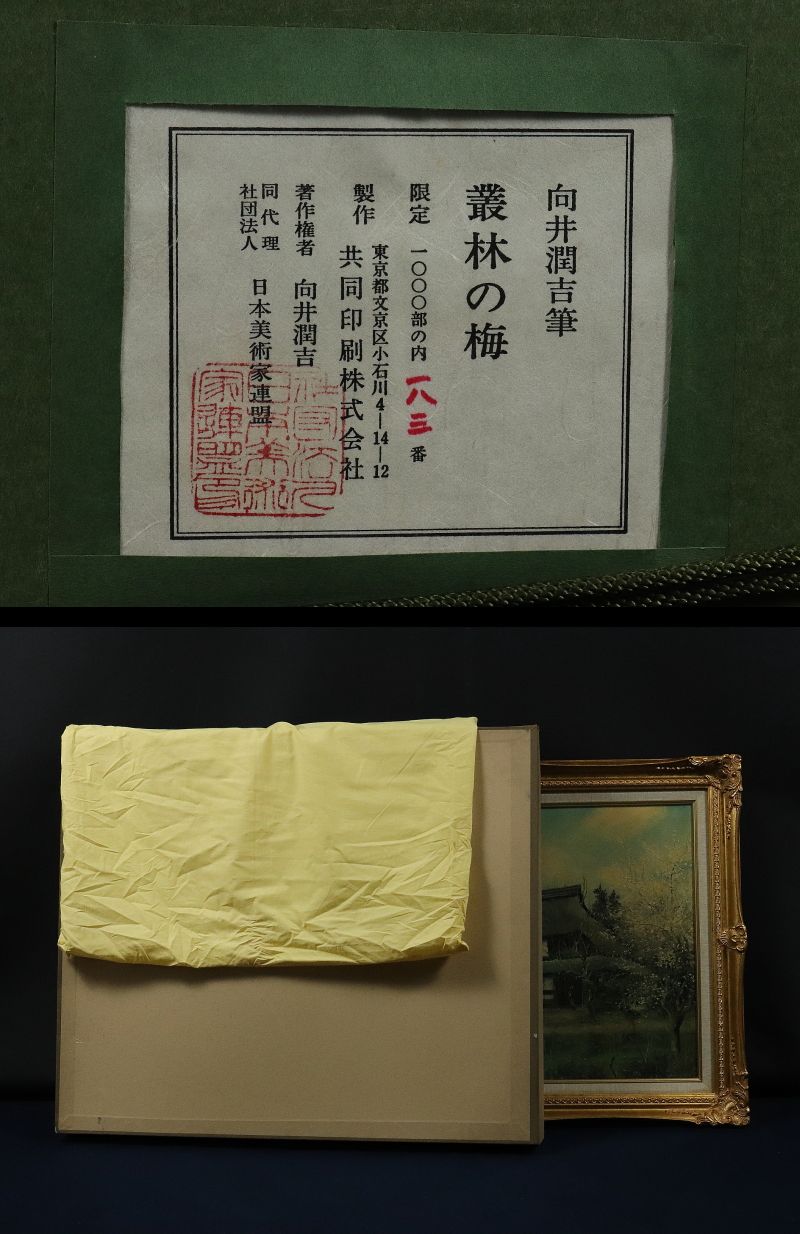 向井潤吉筆
叢林の梅
限定 一〇〇〇部の内 一八三 番
東京都文京区小石川4―14―12
製作 共同印刷株式会社
著作権者 向井潤吉
同代理
社団法人 日本美術家連盟